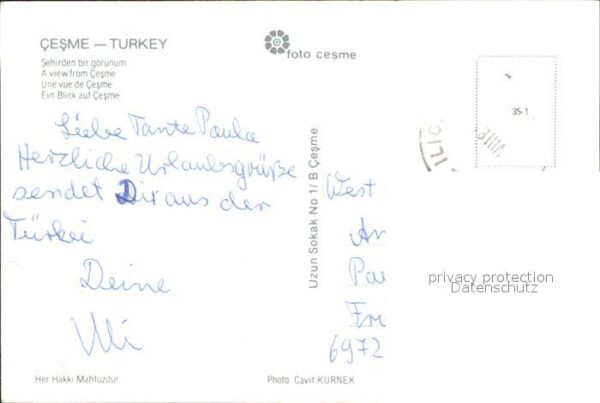 ÇEŞME — TURKEY
Şehirden bir görünüm
A view from Çeşme
Une vue de Çeşme
Ein Blick auf Çeşme
foto ceşme
Liebe Tante Paula
Herzliche Urlaubsgrüße
sendet Dir aus der
Türkei
Deine
Ulli
Her Hakkı Mahfuzdur
Uzun Sokak No 1/ B Çeşme
Photo: Cavit KÜRNEK
35-1
West
Ar
Pau
Fri
6972
privacy protection
Datenschutz